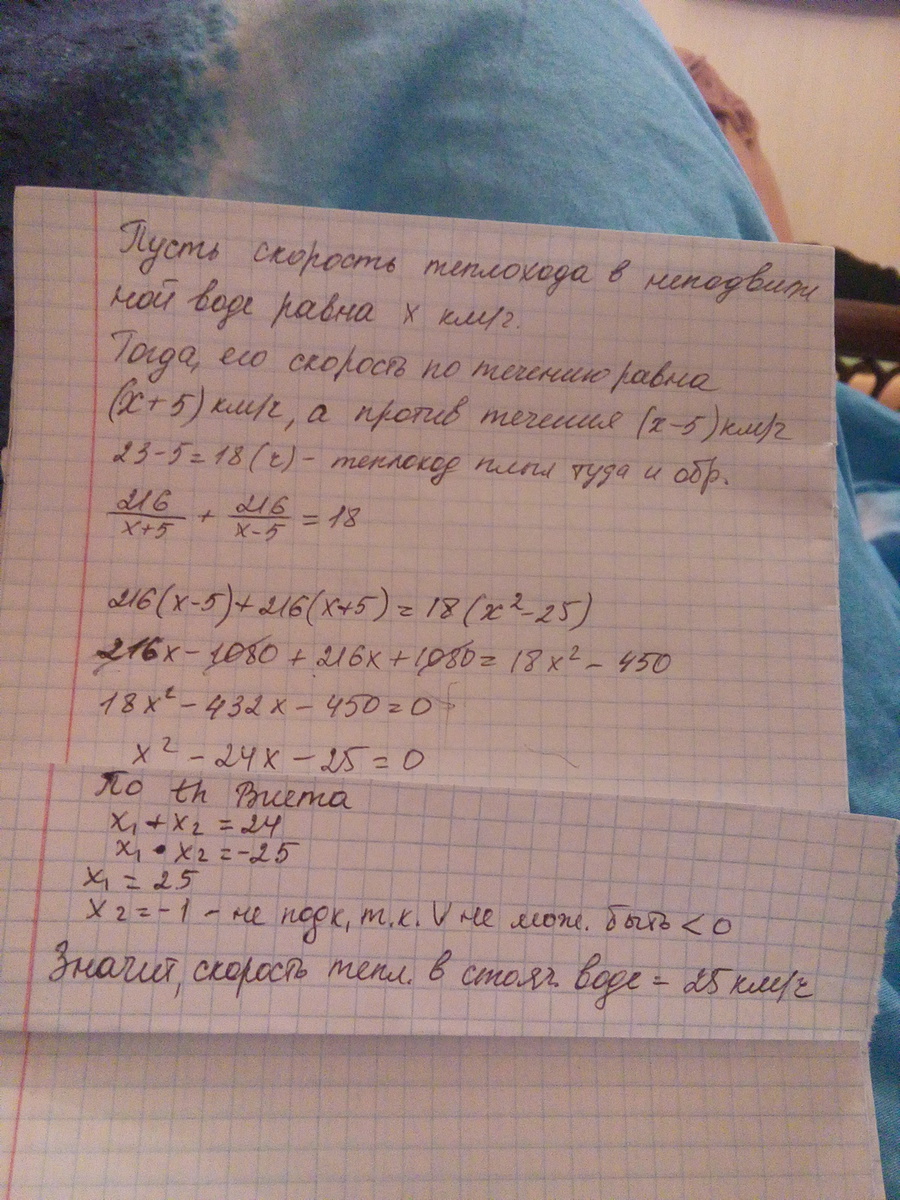 Пусть скорость теплохода в неподвиж
ной воде равна x км/ч.
Тогда, его скорость по течению равна
(x+5) км/ч, а против течения (x-5) км/ч
23-5=18(ч) - теплоход плыл туда и обр.
216/(x+5) + 216/(x-5) = 18
216(x-5)+216(x+5)=18(x²-25)
216x-1080+216x+1080=18x²-450
18x²-432x-450=0
x²-24x-25=0
По th Виета
x₁+x₂=24
x₁•x₂=-25
x₁=25
x₂=-1 - не подх, т.к. V не мож. быть <0
Значит, скорость тепл. в стояч. воде = 25 км/ч